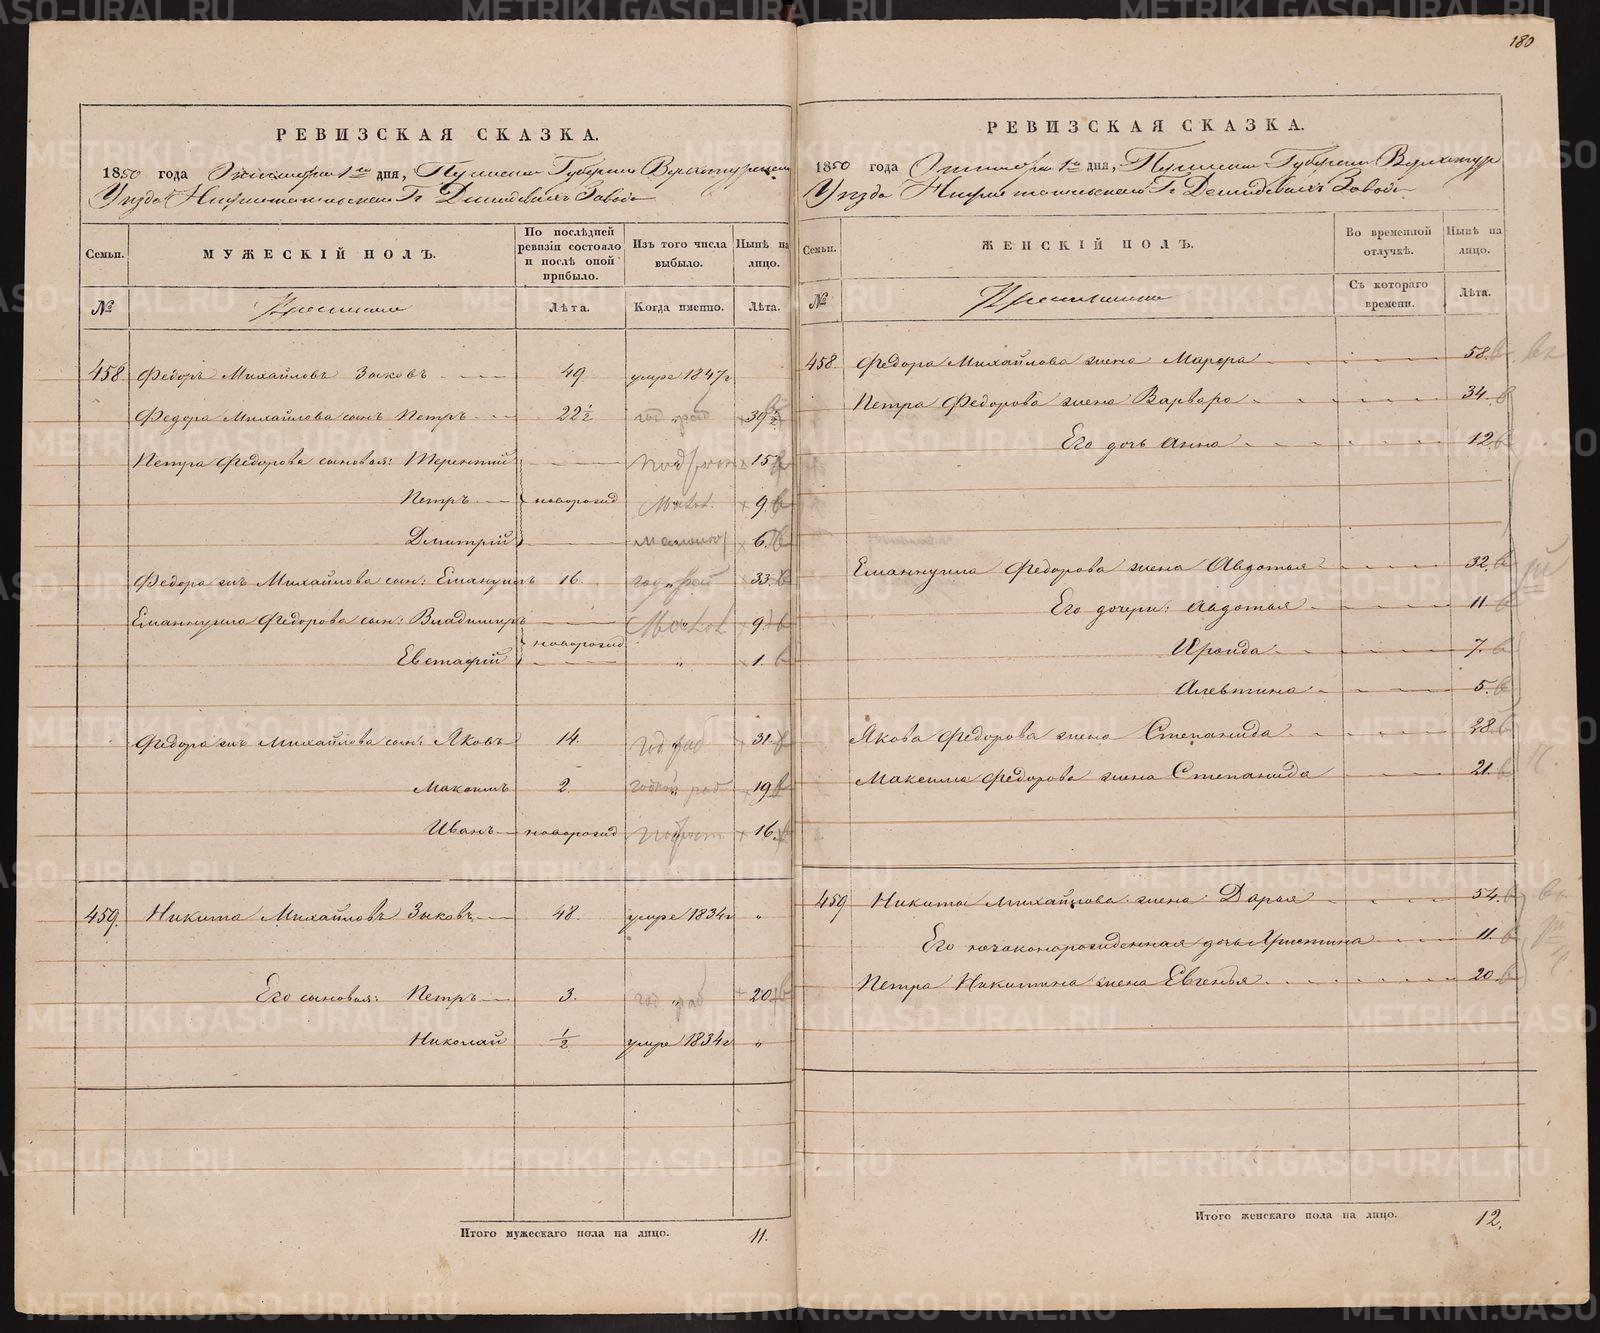 180
РЕВИЗСКАЯ СКАЗКА.
1850 года Октября 1го дня, Пермской Губернии Верхотурскаго
Уезда Нижнетагильскаго Гг Демидовыхъ Завода
Семьи.
МУЖЕСКІЙ ПОЛЪ.
По послѣдней ревизіи состояло и послѣ оной прибыло.
Изъ того числа выбыло.
Нынѣ на лицо.
№
Лѣта.
Когда именно.
Лѣта.
458 Федоръ Михайловъ Зыковъ 49 умре 1847г
Федора Михайлова сынъ Петръ 22½ 39½
Петра Федорова сыновья: Терентій 15
Петръ новорожд 9
Дмитрій 6
Федора жъ Михайлова сын: Емануилъ 16. 33
Емануила Федорова сын: Владимиръ 9
новорожд
Евстафій " 1
Федора жъ Михайлова сын: Яковъ 14. 31
Максимъ 2. 19
Иванъ новорожд 16.
459. Никита Михайловъ Зыковъ 48. умре 1834г "
Его сыновья: Петръ 3. " 20
Николай ½ умре 1834г "
Итого мужескаго пола на лицо. 11.
РЕВИЗСКАЯ СКАЗКА.
1850 года Октября 1го дня, Пермской Губернии Верхотур
Уезда Нижнетагильскаго Гг Демидовыхъ Завода
Семьи.
ЖЕНСКІЙ ПОЛЪ.
Во временной отлучкѣ.
Нынѣ на лицо.
№
Съ котораго времени.
Лѣта.
458. Федора Михайлова жена Марфа 58
Петра Федорова жена Варвара 34.
Его дочь Анна 12
Емануила Федорова жена Авдотья 32
Его дочери: Авдотья 11
Ираида 7.
Алевтина 5.
Якова Федорова жена Степанида 28
Максима Федорова жена Степанида 21.
459 Никиты Михайлова жена Дарья 54.
Его незаконорожденная дочь Христина 11.
Петра Никитина жена Евгенья 20
Итого женскаго пола на лицо. 12.
METRIKI.GASO-URAL.RU